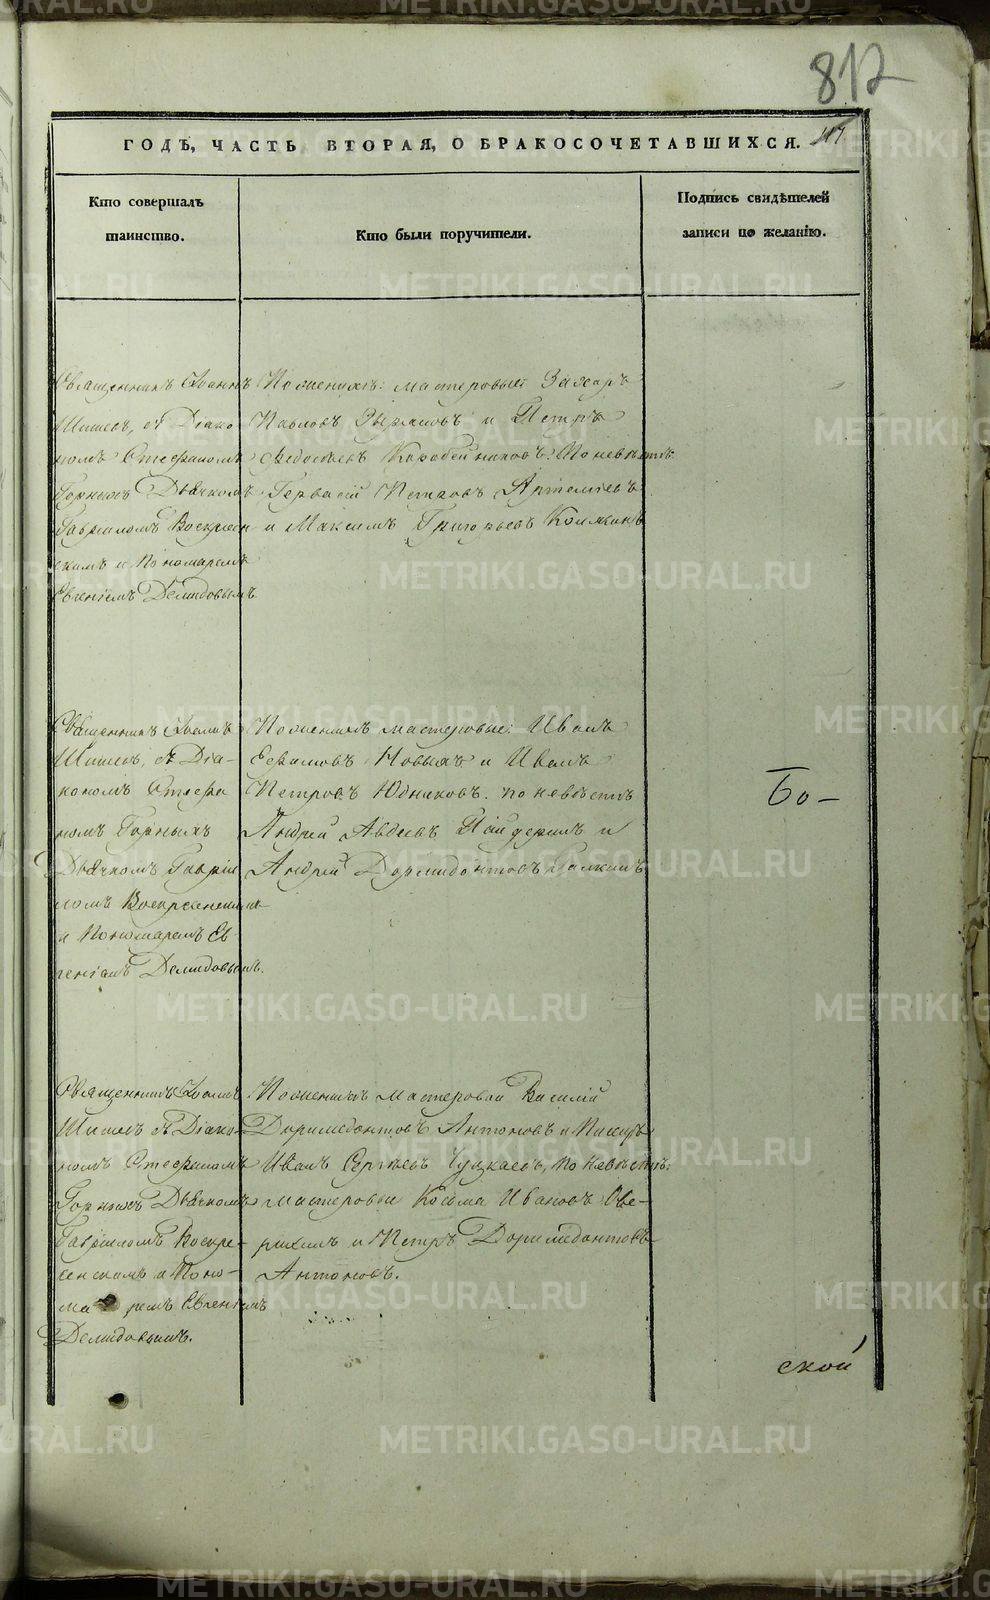 812
ГОДЪ, ЧАСТЬ ВТОРАЯ, О БРАКОСОЧЕТАВШИХСЯ.
Кто совершалъ
таинство.
Кто были поручители.
Подпись свидѣтелей
записи по желанію.
Священникъ Іоаннъ
Шишев, съ Діако-
номъ Стефаномъ
Горныхъ Дьячкомъ
Гавріиломъ Воскресен
скимъ и Пономаремъ
Евгеніемъ Демидовымъ
По женихѣ: мастеровые: Захаръ
Павловъ Зыряновъ и Петръ
Федосѣевъ Коробейниковъ. По невѣстѣ
Гервасій Петровъ Артемьевъ
и Максимъ Григорьевъ
Священникъ Іоаннъ
Шишев, съ Діа-
кономъ Стефа
номъ Горныхъ
Дьячкомъ Гавріи
ломъ Воскресенским
и Пономаремъ Ев-
геніемъ Демидовымъ.
По женихѣ мастеровые: Иванъ
Ефимовъ Новыхъ и Иванъ
Петровъ Юдниковъ. по невѣстѣ
Андрей Авдеевъ и
Андрей Доримидонтовъ Галкинъ
Бо-
Священникъ Іоаннъ
Шишев съ Діако-
номъ Стефаномъ
Горныхъ Дьячкомъ
Гавріиломъ Воскре-
сенскимъ и Поно-
маремъ Евгеніемъ
Демидовымъ.
По женихѣ мастеровой Василій
Доримедонтовъ Антоновъ и Писецъ
Иванъ Сергѣевъ по невѣстѣ:
мастеровыи Козьма Ивановъ Ове-
рихинъ и Петръ Доримедонтовъ
Антоновъ.
ской
METRIKI.GASO-URAL.RU